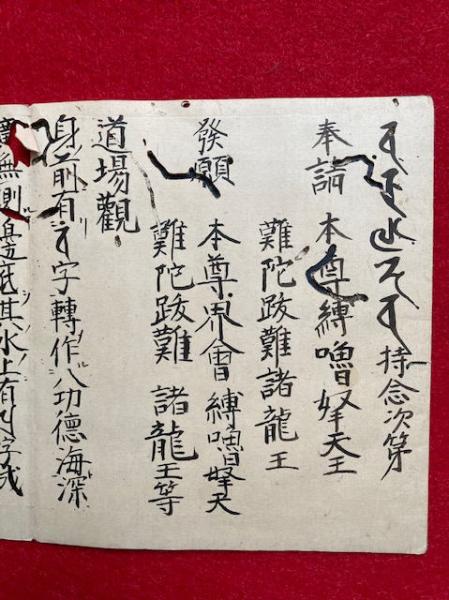 持念次第
奉請 本尊縛嚕拏天王
難陀跋難諸龍王
發願 本尊界會縛嚕拏天
難陀跋難 諸龍王等
道場觀
身前有字轉作八功德海深
廣無邊底其水上有字成